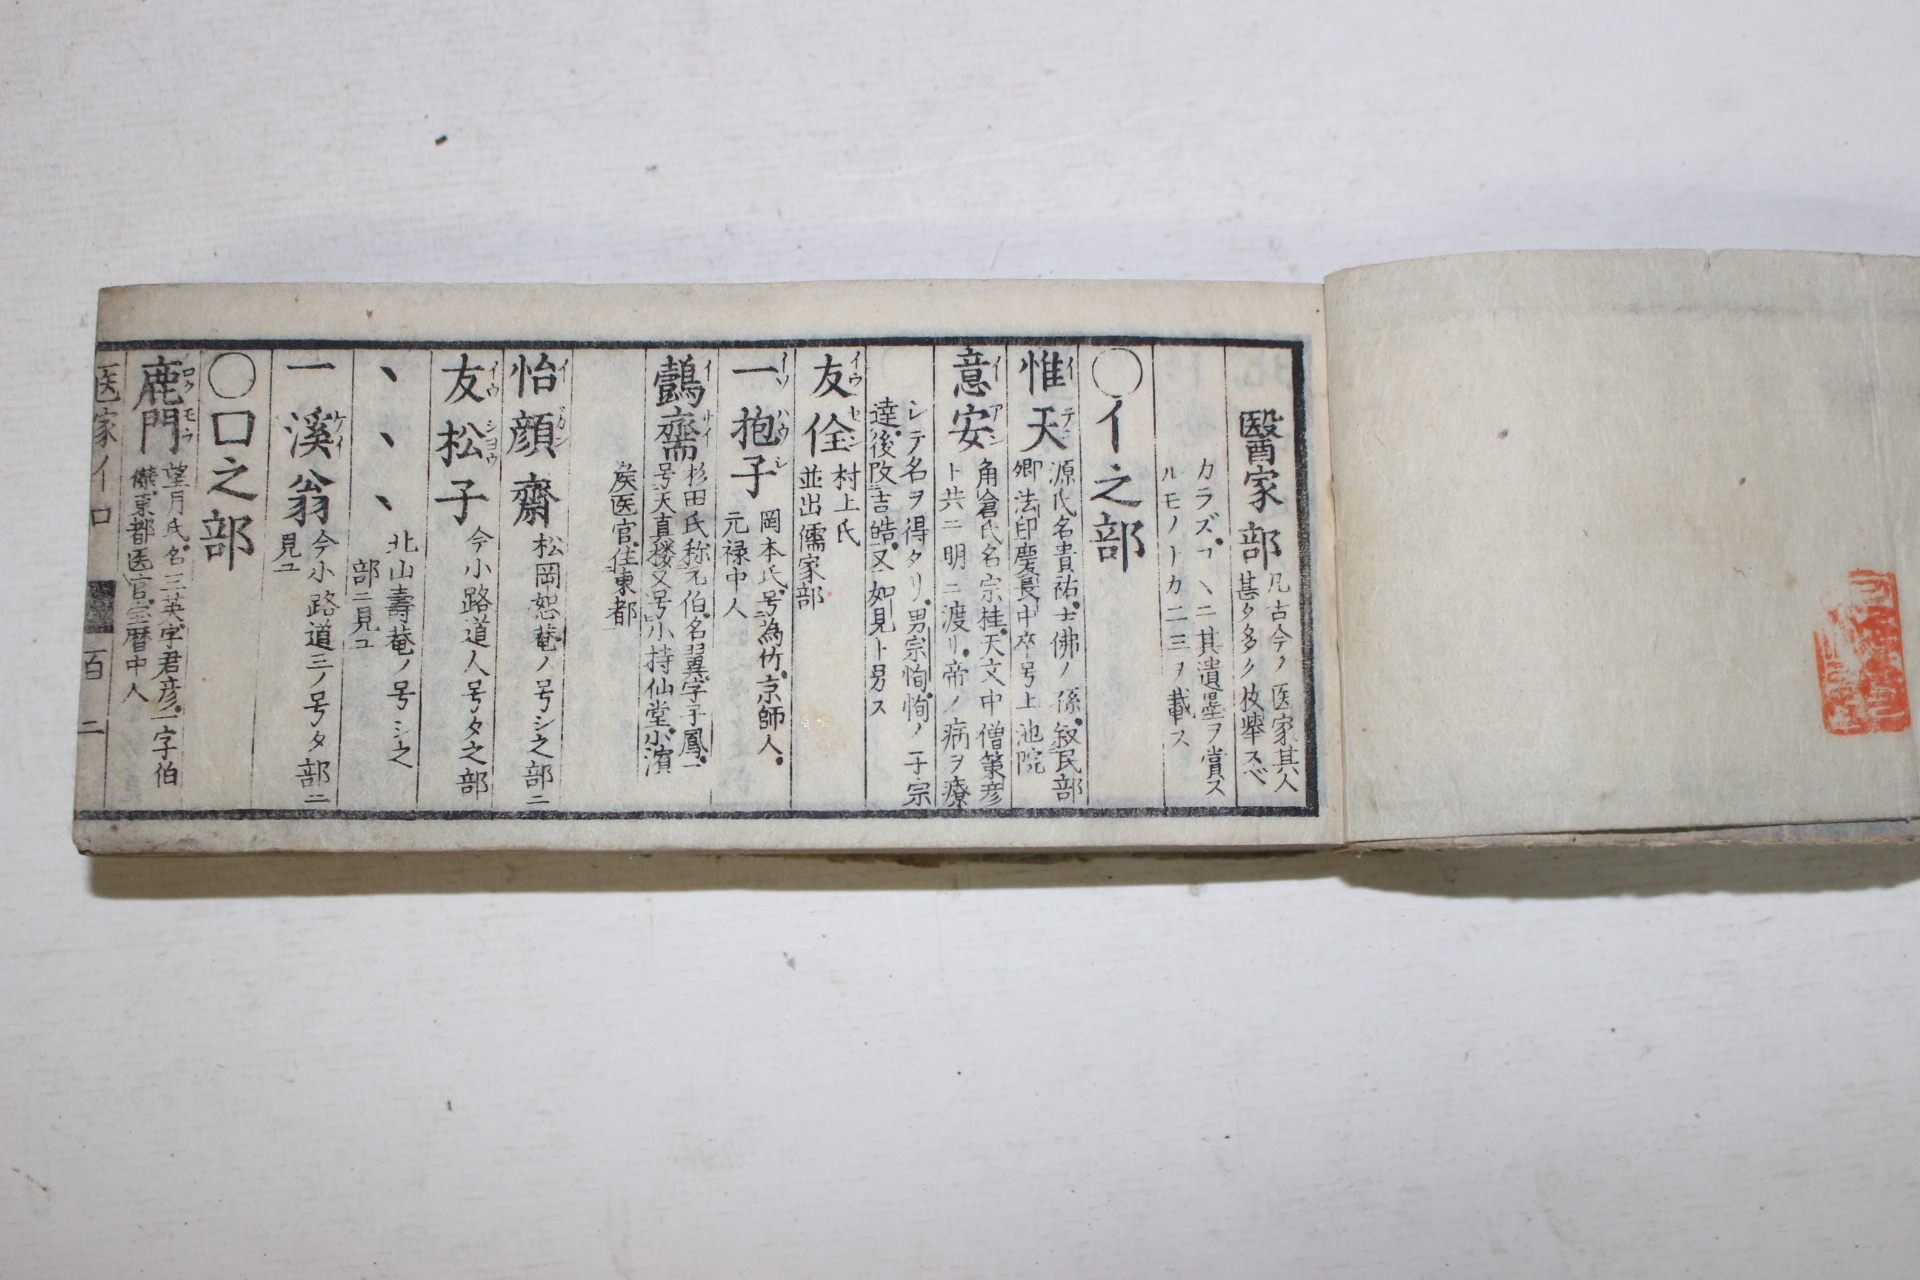 醫家部
凡古今ノ医家其人
甚タ多ク枚擧スベ
カラズコヽニ其遺墨ヲ賞ス
ルモノ卜カ二三ヲ載ス
○イ之部
惟天 イテン
源氏名貴祐士佛ノ孫叙民部
卿法印慶長中卒号上池院
意安 イアン
角倉氏名宗桂天文中僧策彦
ト共ニ明ニ渡リ帝ノ病ヲ療
シテ名ヲ得タリ男宗恂恂ノ子宗
達後改吉皓又如見ト号ス
友佺 イウセン
村上氏
並出儒家部
一抱子 イツハウシ
岡本氏号為竹京師人
元禄中人
鷧齋 イサイ
杉田氏称元伯名翼字子鳳一
号天真楼又号小持仙堂小濱
矦医官住東都
怡顔齋 イガン
松岡恕菴ノ号シ之部ニ
友松子 イウシヨウ
今小路道人号タ之部
ヽヽヽ
北山壽菴ノ号シ之
部ニ見ユ
一溪翁 ケイ
今小路道三ノ号タ部ニ
見ユ
○口之部
鹿門 ロクモウ
望月氏名三英字君彦一字伯
󠄀東都医官宝暦中人
医家イロ
百二